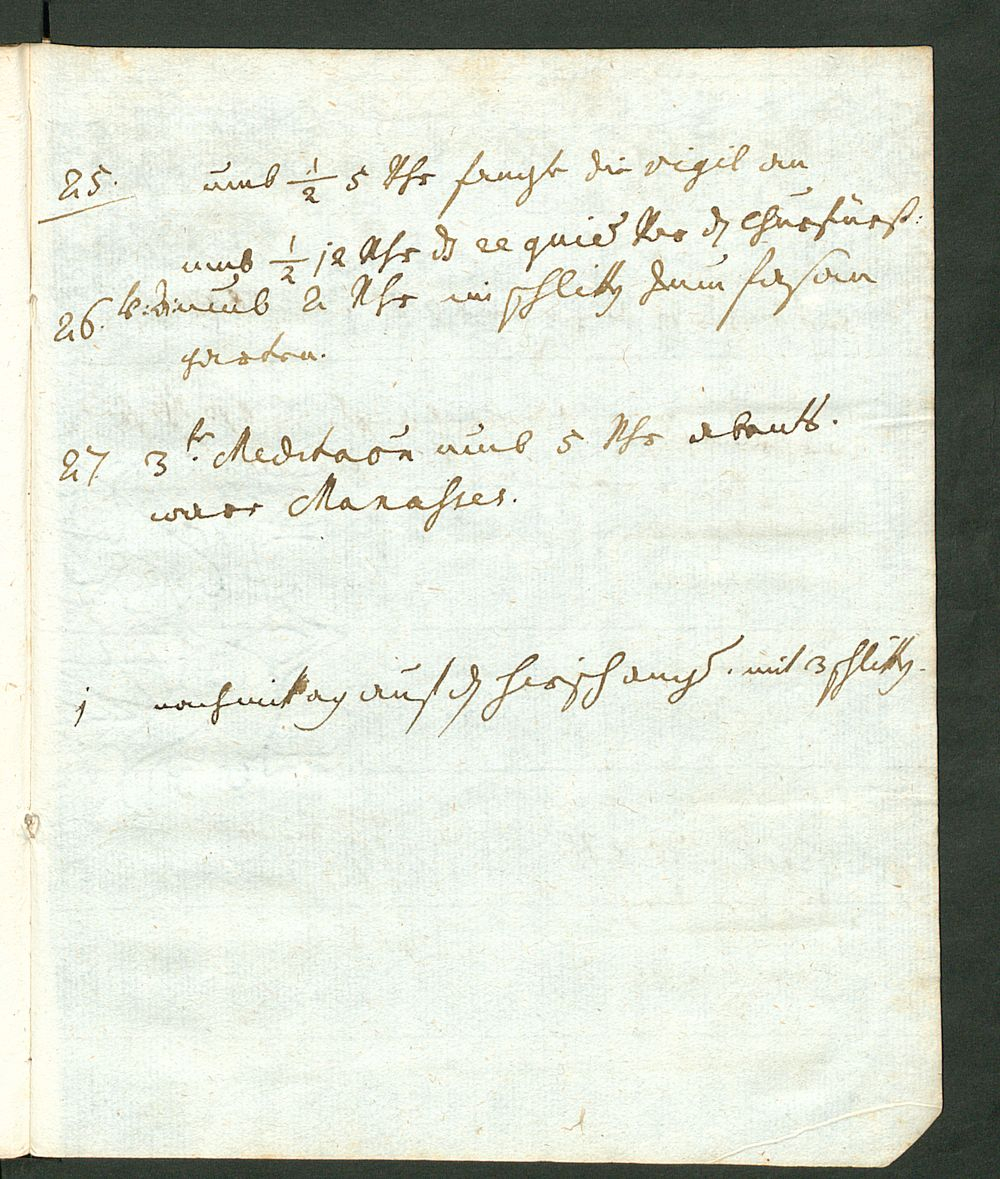 25. umb 1/2 5 Uhr fangte die vigil an
umb 1/2 12 Uhr dz requiem vor dz Churfürst:
26. umb 2 Uhr im schlitten zum fasan
garten.
27 3te Meditaōn umb 5 Uhr abents.
ware Manasses.
1 nachmittag auf dz mit 3 schlitten.